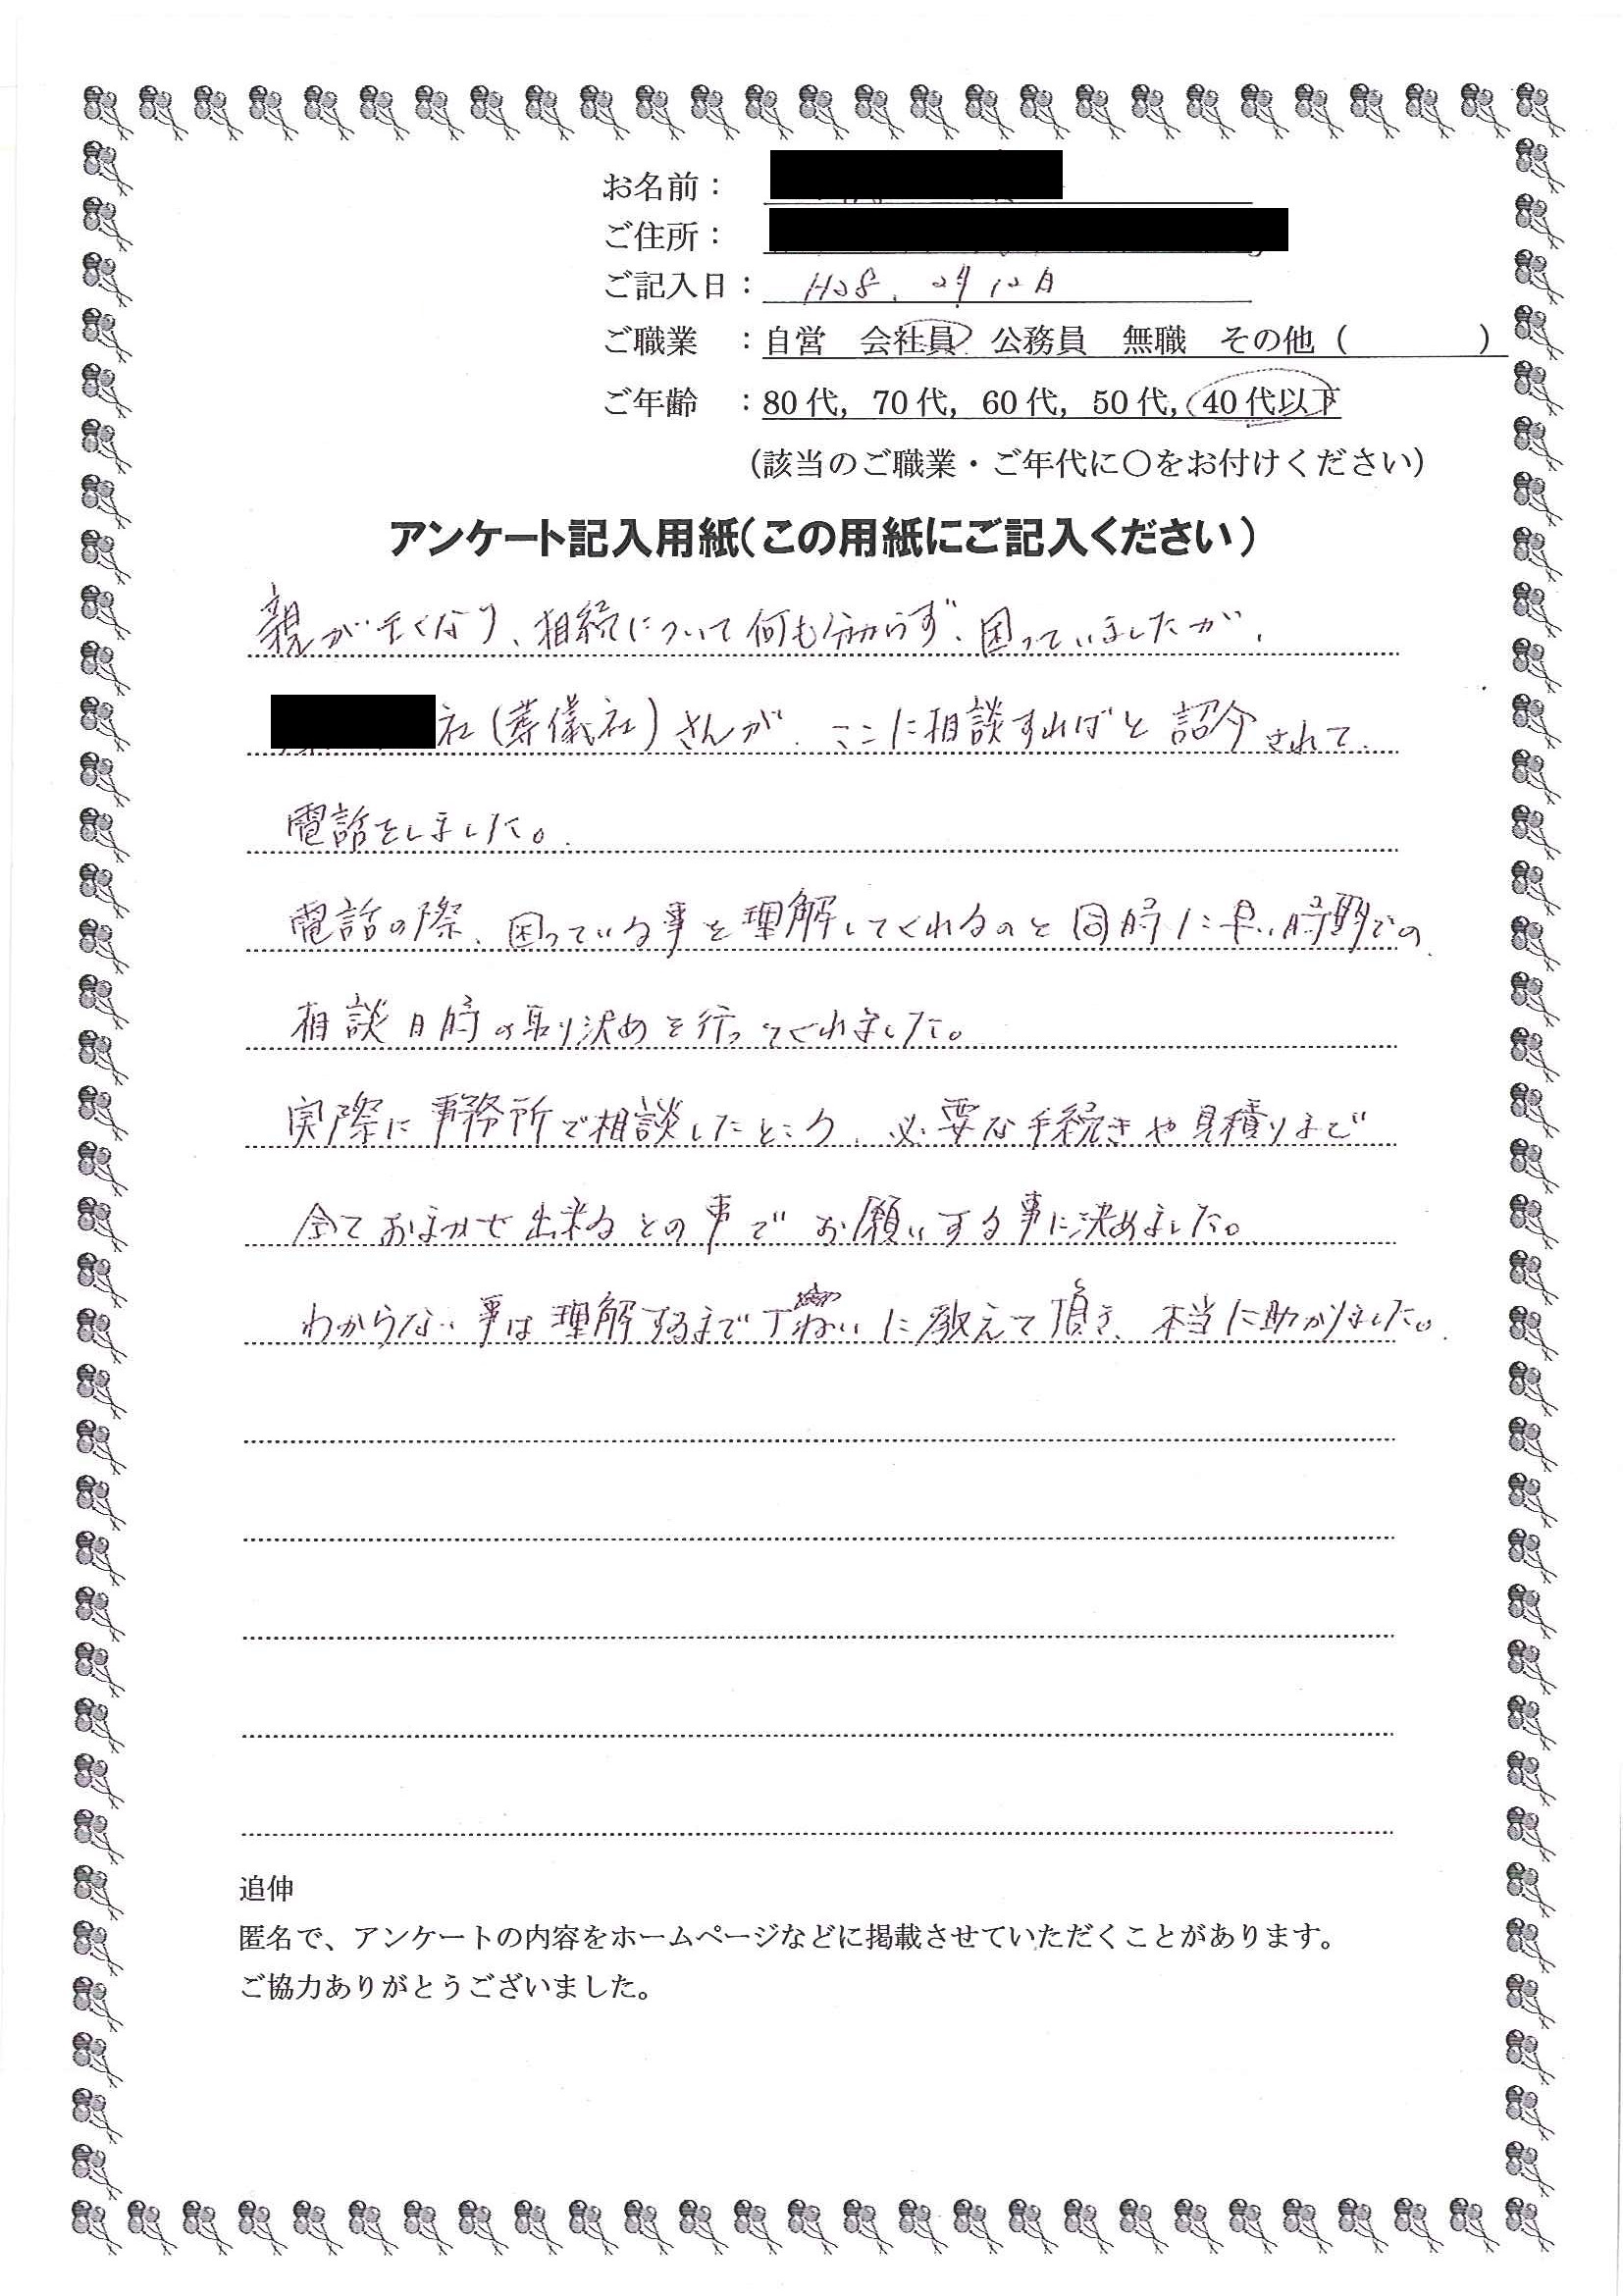 お名前：
ご住所：
ご記入日： H28. 2月12日
ご職業 ：自営 会社員 公務員 無職 その他（ ）
ご年齢 ：80代，70代，60代，50代，40代以下
（該当のご職業・ご年代に〇をお付けください）
アンケート記入用紙（この用紙にご記入ください）
親が亡くなり、相続について何も分からず、困っていましたが、
社（葬儀社）さんが、ここに相談すればと紹介されて、
電話をしました。
電話の際、困っている事を理解してくれるのと同時に早い時期での
相談日時の取り決めを行ってくれました。
実際に事務所で相談したところ、必要な手続きや見積りまで
全ておまかせ出来るとの事でお願いする事に決めました。
わからない事は理解するまで丁ねいに教えて頂き、本当に助かりました。
追伸
匿名で、アンケートの内容をホームページなどに掲載させていただくことがあります。
ご協力ありがとうございました。